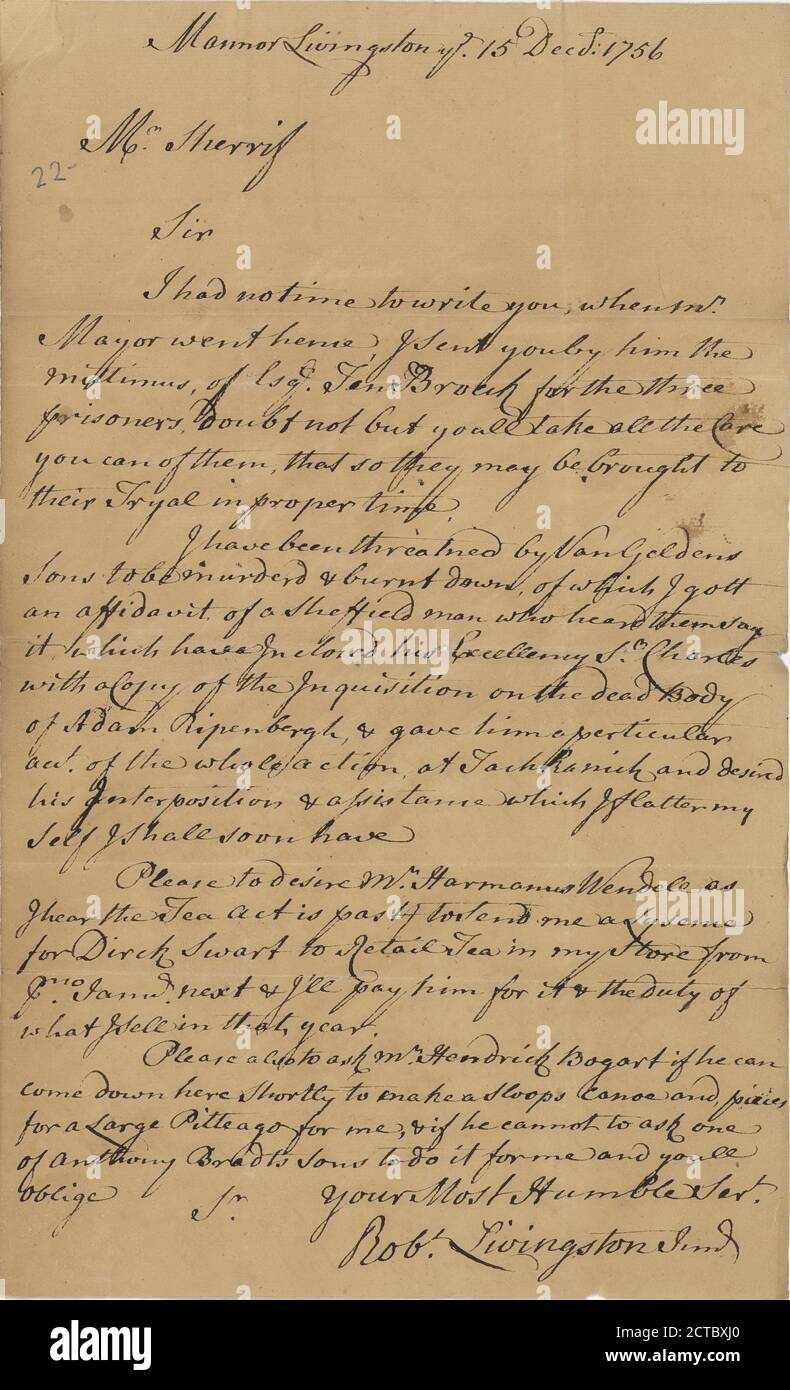 Mannor Livingston ye. 15 Decd: 1756
Mr. Sherrif
22-
Sir
I had no time to write you, when Mr.
Mayor went home, I sent you by him the
mittimus, of Esqr. Ten Broeck for the three
prisoners, doubt not but youll take all the Care
you can of them, that so they may be brought to
their Tryal in proper time.
I have been threatned by Van Geldens
Sons to be murderd & burnt down, of which I gott
an affidavit of a Sheffield man who heard them say
it, which have Inclosed his Excellency Sr. Charles
with a Copy of the Inquisition on the dead Body
of Adam Ripenbergh, & gave him a perticular
acct. of the whole action, at Tachkanick and desired
his Interposition & assistance which I flatter my
Self I shall soon have
Please to desire Mr. Harmanus Wendele as
I hear the Tea Act is past to send me a Lysence
for Dirck Swart to Retail Tea in my Store from
Pmo. Janry. next & I'll pay him for it & the duty of
what I sell in that year.
Please also to ask Mr. Hendrick Bogart if he can
come down here Shortly to make a Sloops Canoe and, pieces
for a Large Pitteago for me, & if he cannot to ask one
of Anthony Bradts Sons to do it for me and youll
oblige Sr. Your Most Humble Sert.
Robt. Livingston Junr
a alamy
alamy
Image ID: 2CTBXJ0
www.alamy.com